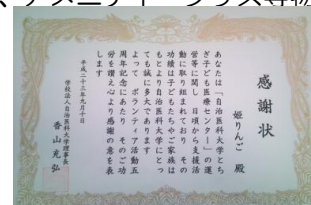 、アメニティーグッズ専物
感謝状
姫りんご 殿
あなたは「自治医科大学とち
ぎ子ども医療センター」の運
営等に関し日頃から支援活
動に取り組まれており その
功績は子どもたちやご家族は
もとより自治医科大学にとっ
ても誠に多大であります
よって ボランティア活動五
周年記念にあたり そのご功
労を讃え心より感謝の意を表
します
平成二十三年九月十日
学校法人自治医科大学理事長
香山充弘